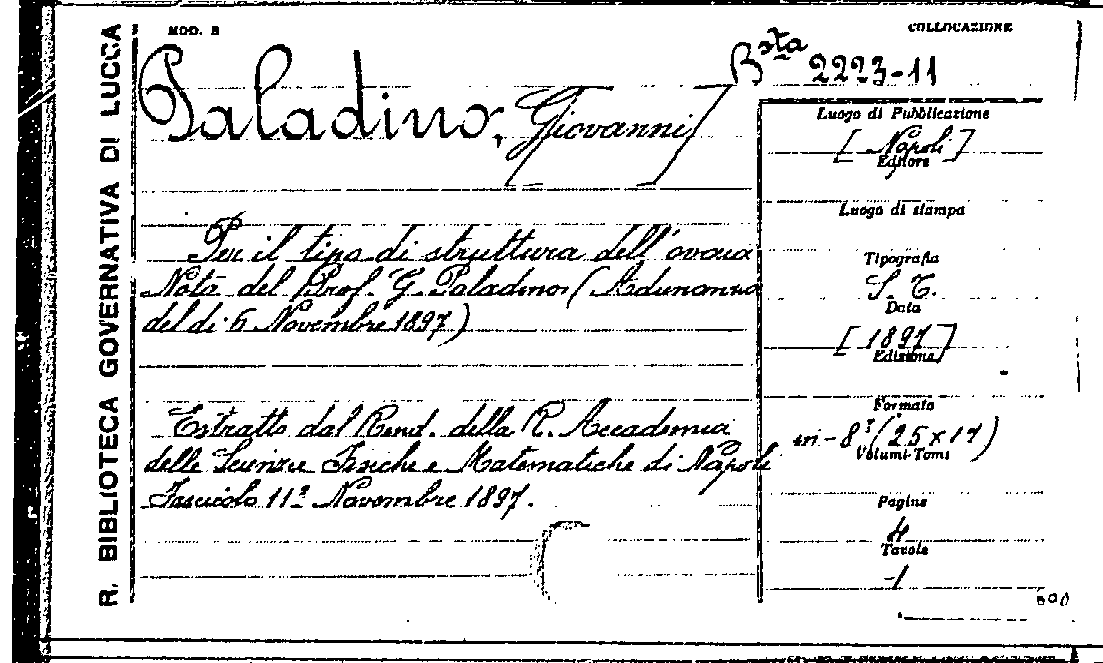 R. BIBLIOTECA GOVERNATIVA DI LUCCA
MOD. B
COLLOCAZIONE
Bsta 2223-11
Paladino, Giovanni]
Per il tipo di struttura dell'ovaia
Nota del Prof. G. Paladino (Adunanza
del dì 6 Novembre 1897)
Estratto dal Rend. della R. Accademia
delle Scienze Fisiche e Matematiche di Napoli
Fascicolo 11° Novembre 1897.
Luogo di Pubblicazione
[Napoli]
Editore
Luogo di stampa
Tipografia
S. T.
Data
[1897]
Edizione
Formato
in-8° (25x17)
Volumi-Tomi
Pagine
4
Tavole
-1